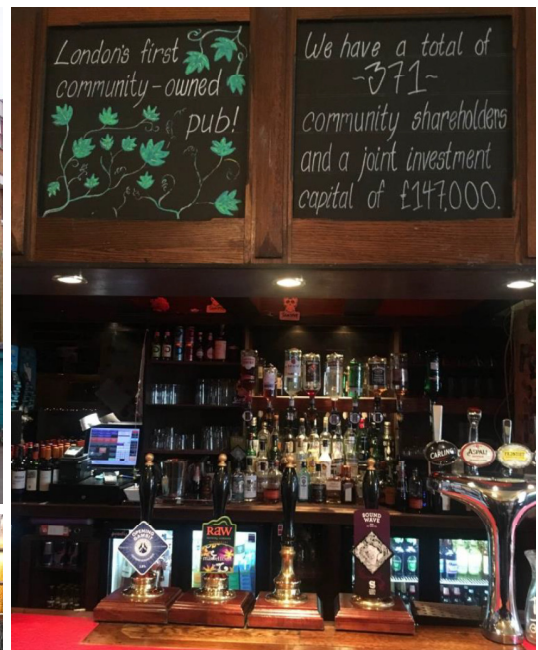 London's first
community-owned
pub!
We have a total of
~371~
community shareholders
and a joint investment
capital of £147,000.
CARLING
ASPALL
RAW
SOUND
WAVE